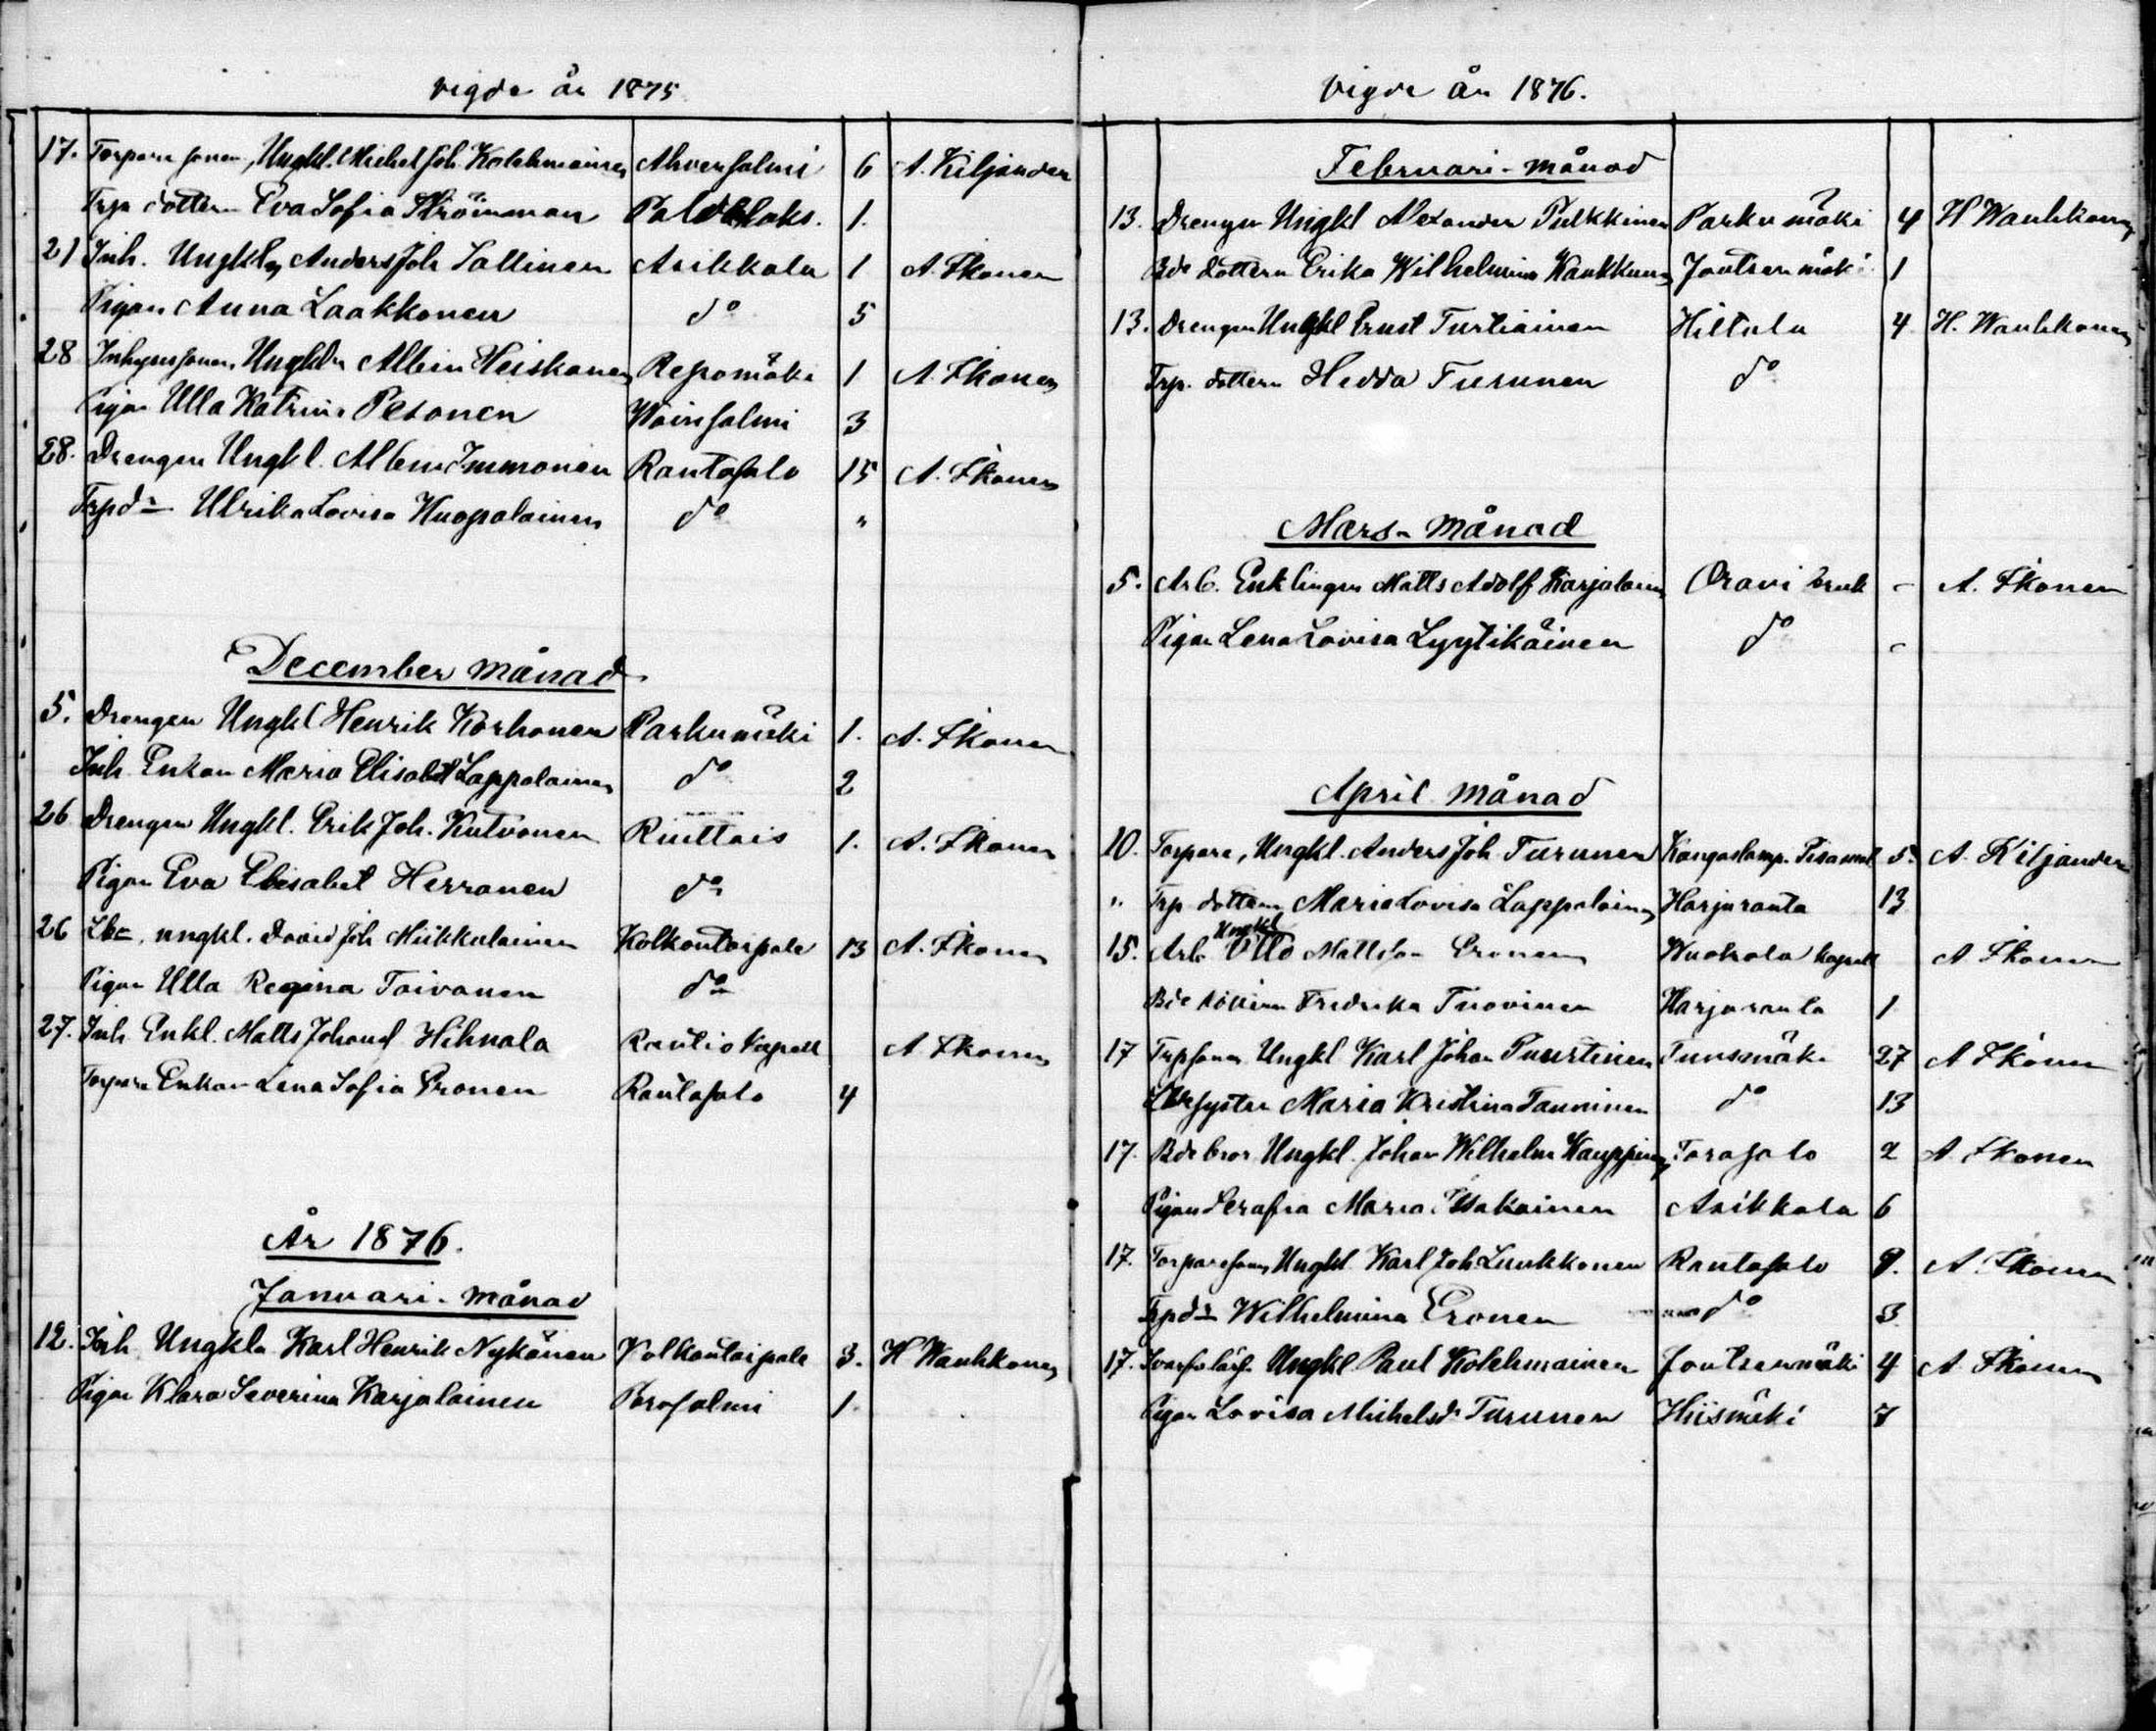 vigde år 1875
17. Torpare sonen, Ungkl. Michel Joh. Kolehmainen Ahvensalmi 6 A. Kiljander
Trp dottern Eva Sofia Ströinman 1.
21 Inh. Ungkln Anders Joh Sallinen Asikkala 1 A. Ikonen
Pigan Anna Laakkonen do 5
28 Inhysessonen, Ungkln Albin Heiskanen Repomäki 1 A. Ikonen
Pigan Ulla Katrina Pesonen Woinsalmi 3
28. Drengen Ungkl. Albin Immonen Rantasalo 15 A. Ikonen
Trpdr Ulrika Lovisa Huopalainen do "
December månad
5. Drengen Ungkl Henrik Korhonen Parkumäki 1. A. Ikonen
Inh Enkan Maria Elisabet Lappalainen do 2
26 Drengen Ungkl. Erik Joh. Kutvonen 1. A. Ikonen
Pigan Eva Elisabet Herranen do
26 ungkl. David Joh Miikkulainen Kolkontaipale 13 A. Ikonen
Pigan Ulla Regina Toivanen do
27. Inh Enkl. Matts Johansf Hihnala Rautio Kapell A Ikonen
Torpare Enkan Lena Sofia Eronen Rantasalo 4
År 1876.
Januari-månad
12. Inh Ungkln Karl Henrik Nykänen Kolkontaipale 3. H Wauhkonen
Pigan Klara Severina Karjalainen Porosalmi 1
vigde år 1876.
Februari-månad
13. Drengen Ungkl Alexander Pulkkinen Parkumäki 4 H Wauhkonen
Bde dottern Erika Wilhelmina Kaukkunen Joutsenmäki 1
13. Drengen Ungkl Ernst Turtiainen Hiltula 4 H. Wauhkonen
Trp. dottern Hedda Turunen do
Mars-månad
5. Arb. Enklingen Matts Adolf Karjalainen Oravi bruk - A. Ikonen
Pigan Lena Lovisa Lyytikäinen do -
April månad
10. Torpare, Ungkl. Anders Joh. Turunen Kangaslamp. 5. A. Kiljander
" Trp dottern Maria Lovisa Lappalainen Harjuranta 13
15. Arb Ungkl Otto Mattsson Eronen kapell A Ikonen
Bde dottern Fredrika Tuovinen Harjuranta 1
17 Trpsonen Ungkl Karl Johan Puurtinen Tunsmäki 27 A Ikonen
syster Maria Kristina Tanninen do 13
17. Bde bror Ungkl. Johan Wilhelm Kauppinen 2 A Ikonen
Pigan Serafia Maria Asikkala 6
17. Torparesonen Ungkl Karl Joh Luukkonen Rantasalo 9. A. Ikonen
Trpdr Wilhelmina Eronen do 3
17. Ungkl. Paul Kolehmainen Joutsenmäki 4 A Ikonen
Pigan Lovisa Michelsdr Turunen Hiismäki 7